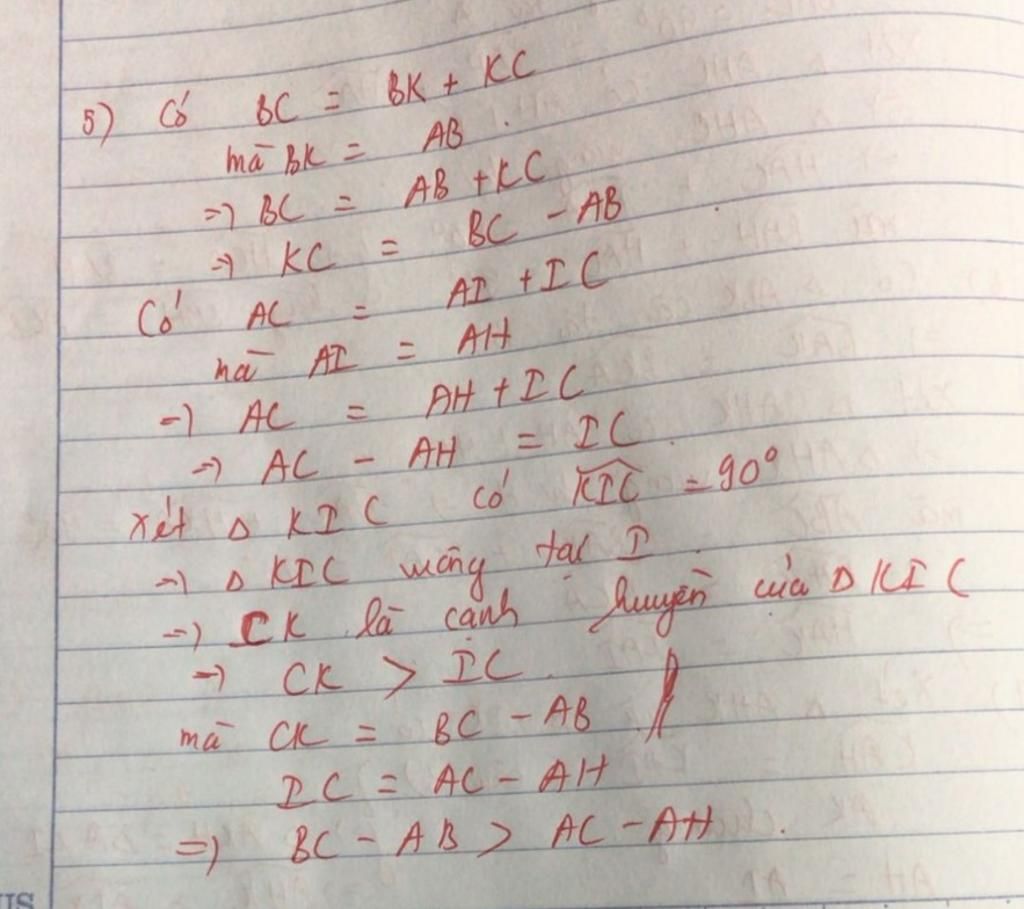 5) Có BC = BK + KC
mà BK = AB.
=> BC = AB + KC
=> KC = BC - AB
Có AC = AI + IC
mà AI = AH
=> AC = AH + IC
=> AC - AH = IC.
Xét Δ KIC có \widehat{KIC} = 90°
=> Δ KIC vuông tại I
=> CK là cạnh huyền của Δ KIC
=> CK > IC.
mà CK = BC - AB
IC = AC - AH
=> BC - AB > AC - AH.